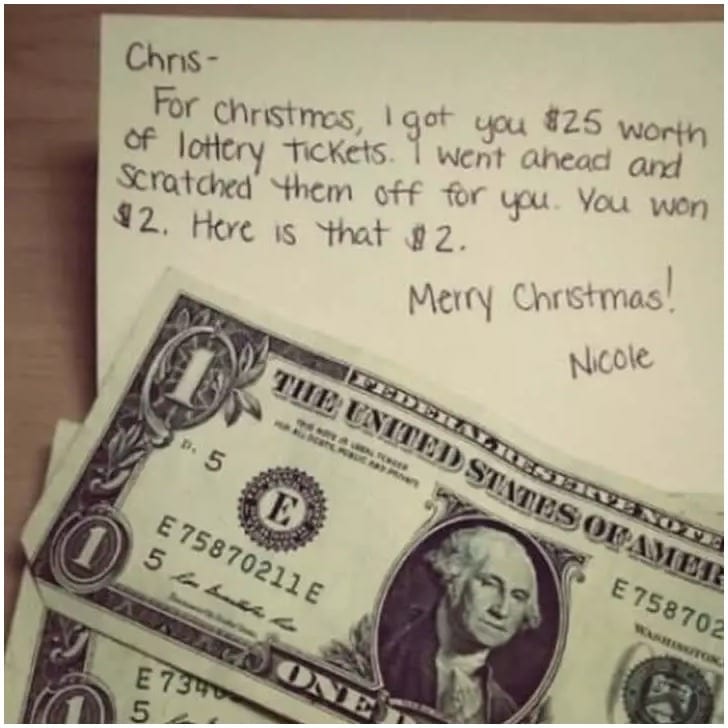 Chris-
For christmas, I got you $25 worth
of lottery tickets. I went ahead and
scratched them off for you. You won
$2. Here is that $2.
Merry Christmas!
Nicole
FEDERAL RESERVE NOTE
THE UNITED STATES OF AMER
THIS NOTE IS LEGAL TENDER
FOR ALL DEBTS, PUBLIC AND PRIVATE
1
5
E
E 75870211 E
5
1
E 758702
WASHINGTON
ONE
E 734
5
1